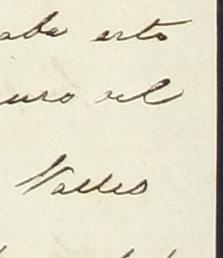 abe esto
uro del
Valles